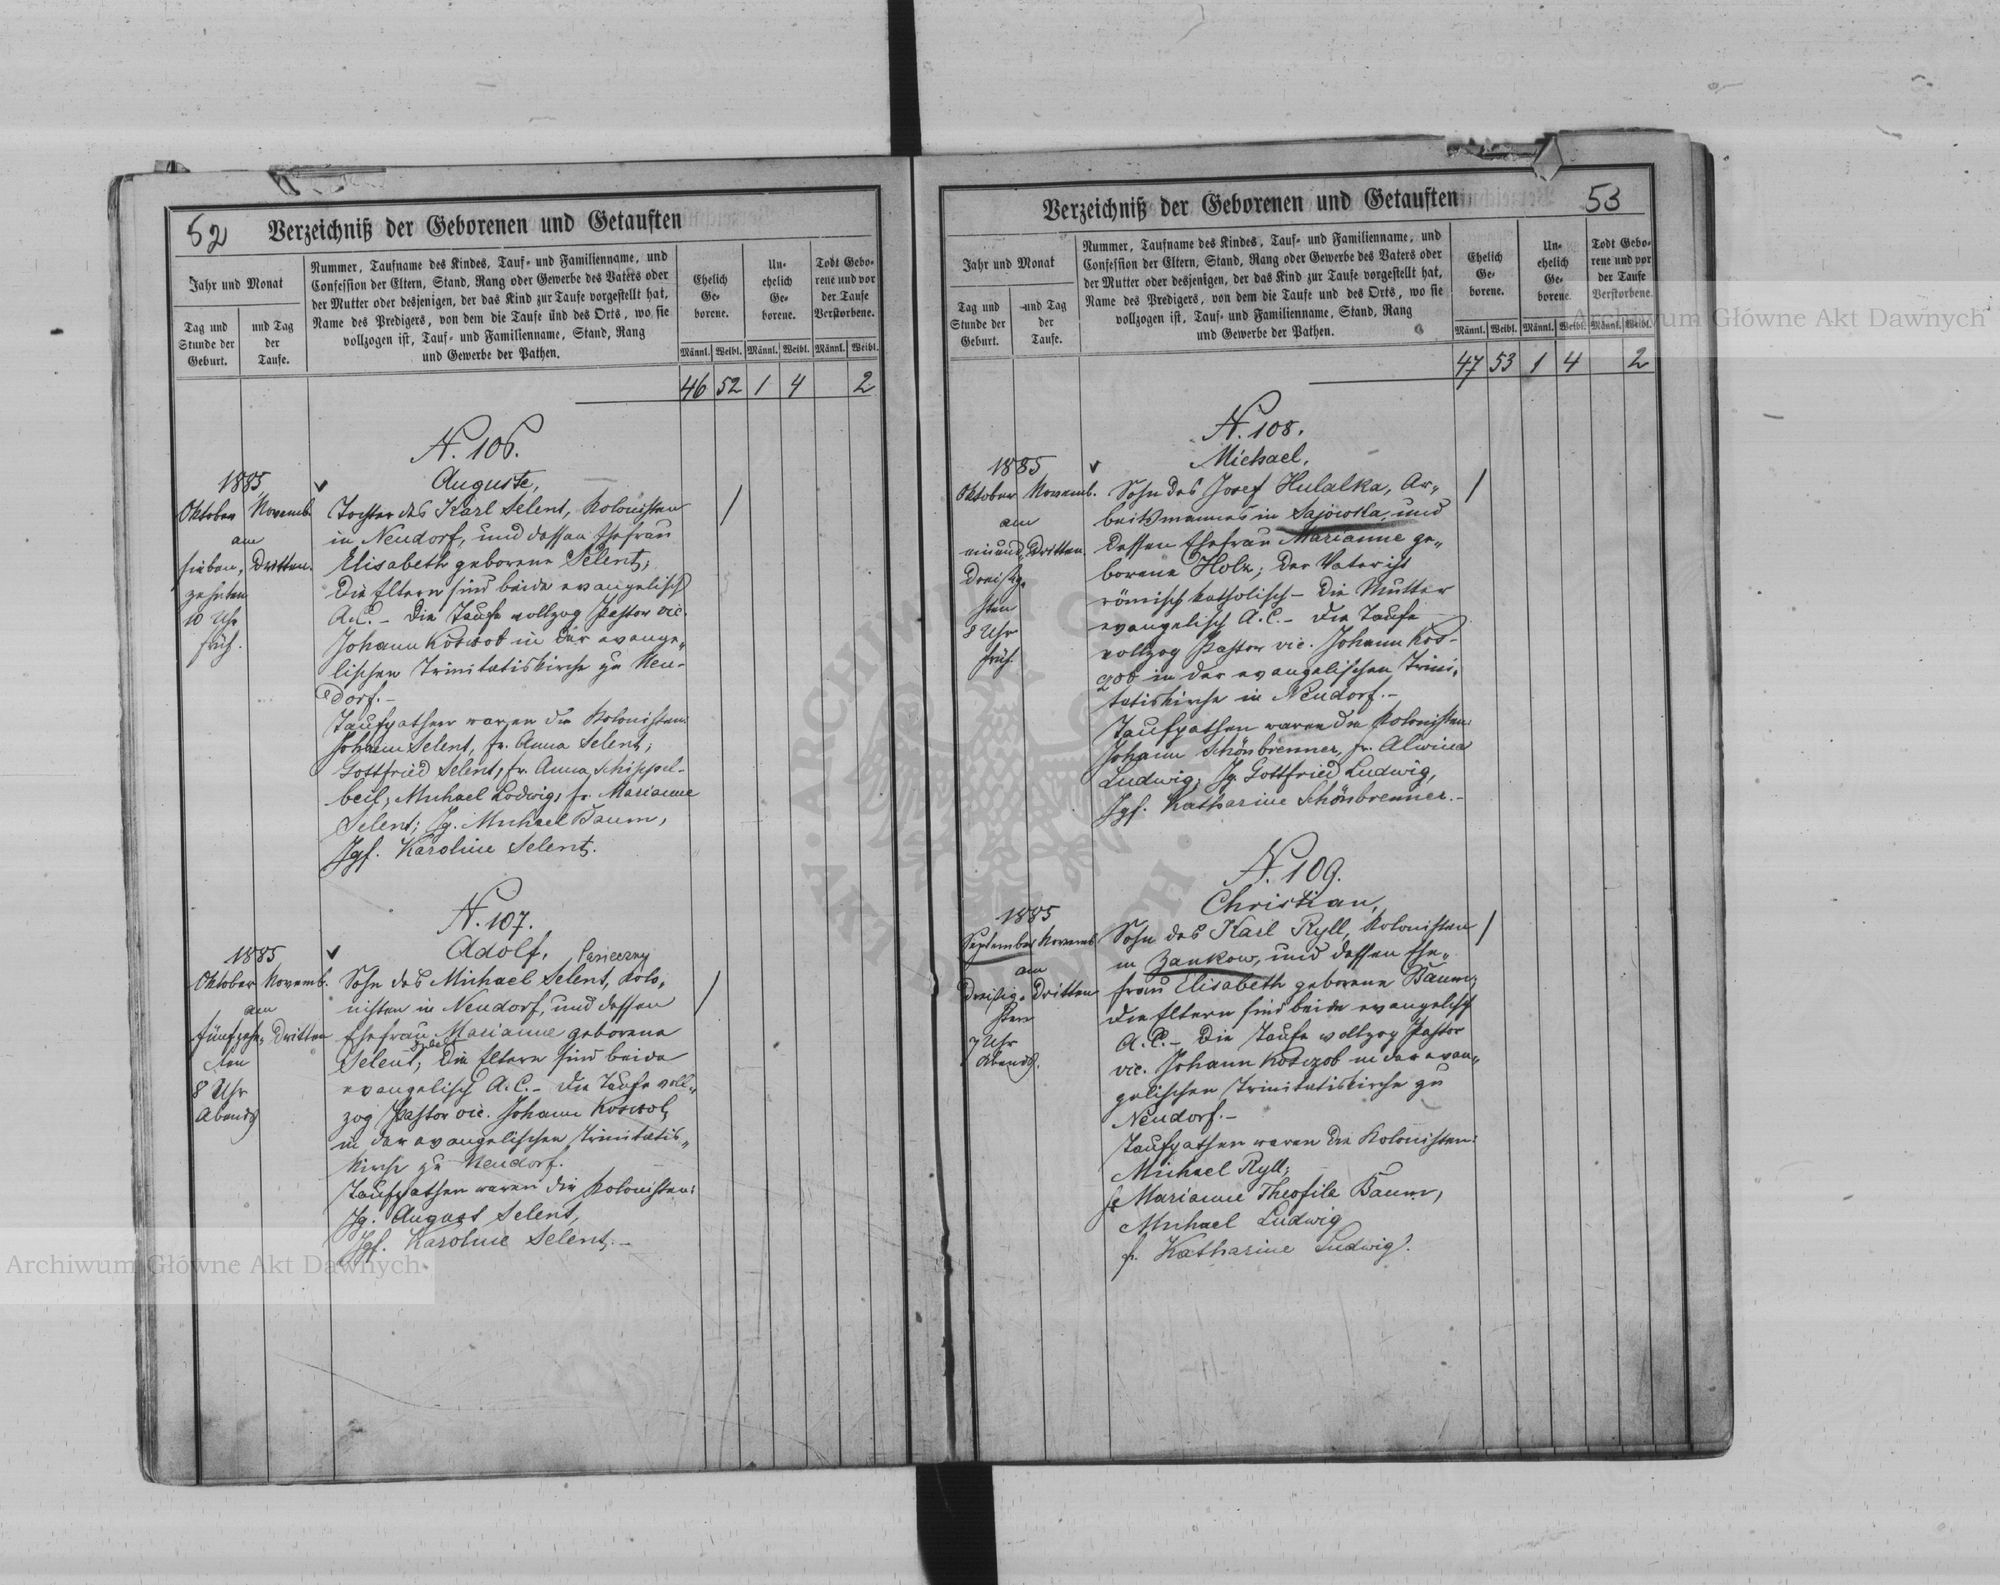 52
Verzeichniß der Geborenen und Getauften
Jahr und Monat
Tag und
Stunde der
Geburt.
und Tag
der
Taufe.
Nummer, Taufname des Kindes, Tauf- und Familienname, und
Confession der Eltern, Stand, Rang oder Gewerbe des Vaters oder
der Mutter oder desjenigen, der das Kind zur Taufe vorgestellt hat,
Name des Predigers, von dem die Taufe und des Orts, wo sie
vollzogen ist, Tauf- und Familienname, Stand, Rang
und Gewerbe der Pathen.
Ehelich
Ge-
borene.
Un-
ehelich
Ge-
borene.
Todt Gebo-
rene und vor
der Taufe
Verstorbene.
Männl. Weibl. Männl. Weibl. Männl. Weibl.
46 52 1 4 2
N. 106.
1885
Oktober Novemb.
am
sieben- Dritten.
zehnten
10 Uhr
früh.
Auguste,
Tochter des Karl Selent, Kolonisten
in Neudorf, und dessen Ehefrau
Elisabeth geborene Selent;
Die Eltern sind beide evangelisch
A.C. – Die Taufe vollzog Pastor vic.
Johann in der evange-
lischen Trinitatiskirche zu Neu-
dorf. –
Taufpathen waren die Kolonisten:
Johann Selent, fr. Anna Selent;
Gottfried Selent, fr. Anna Schippel-
beil; Michael Ludwig, fr. Marianne
Selent; Jg. Michael Baum,
Jgf. Karoline Selent.
N. 107.
1885
Oktober Novemb.
am
fünfzehn- Dritten
ten
8 Uhr
Abends
Adolf,
Sohn des Michael Selent, Kolo-
nisten in Neudorf, und dessen
Ehefrau Marianne geborene
Selent; Die Eltern sind beide
evangelisch A.C. – Die Taufe voll-
zog Pastor vic. Johann
in der evangelischen Trinitatis-
kirche zu Neudorf.
Taufpathen waren die Kolonisten:
Jg. August Selent,
Jgf. Karoline Selent. –
53
Verzeichniß der Geborenen und Getauften
Jahr und Monat
Tag und
Stunde der
Geburt.
und Tag
der
Taufe.
Nummer, Taufname des Kindes, Tauf- und Familienname, und
Confession der Eltern, Stand, Rang oder Gewerbe des Vaters oder
der Mutter oder desjenigen, der das Kind zur Taufe vorgestellt hat,
Name des Predigers, von dem die Taufe und des Orts, wo sie
vollzogen ist, Tauf- und Familienname, Stand, Rang
und Gewerbe der Pathen.
Ehelich
Ge-
borene.
Un-
ehelich
Ge-
borene.
Todt Gebo-
rene und vor
der Taufe
Verstorbene.
Männl. Weibl. Männl. Weibl. Männl. Weibl.
47 53 1 4 2
N. 108.
1885
Oktober Novemb.
am
einund- Dritten.
Dreißig-
sten
8 Uhr
früh.
Michael,
Sohn des Josef Hulalka, Ar-
beitsmannes in Sajówka, und
dessen Ehefrau Marianne ge-
borene Holz; Der Vater ist
römisch katholisch – Die Mutter
evangelisch A.C. – Die Taufe
vollzog Pastor vic. Johann
in der evangelischen Trini-
tatiskirche in Neudorf. –
Taufpathen waren die Kolonisten:
Johann Schönbrenner, fr. Alwina
Ludwig; Jg. Gottfried Ludwig,
Jgf. Katharine Schönbrenner. –
N. 109.
1885
September Novemb.
am
Dreißig- Dritten
sten
7 Uhr
Abends.
Christian,
Sohn des Karl Ryll, Kolonisten
in Zankow, und dessen Ehe-
frau Elisabeth geborene Baum;
Die Eltern sind beide evangelisch
A.C. – Die Taufe vollzog Pastor
vic. Johann in der evan-
gelischen Trinitatiskirche zu
Neudorf. –
Taufpathen waren die Kolonisten:
Michael Ryll;
fr Marianne Theofile Baum,
Michael Ludwig
fr. Katharine Ludwig.
Archiwum Główne Akt Dawnych
Archiwum Główne Akt Dawnych